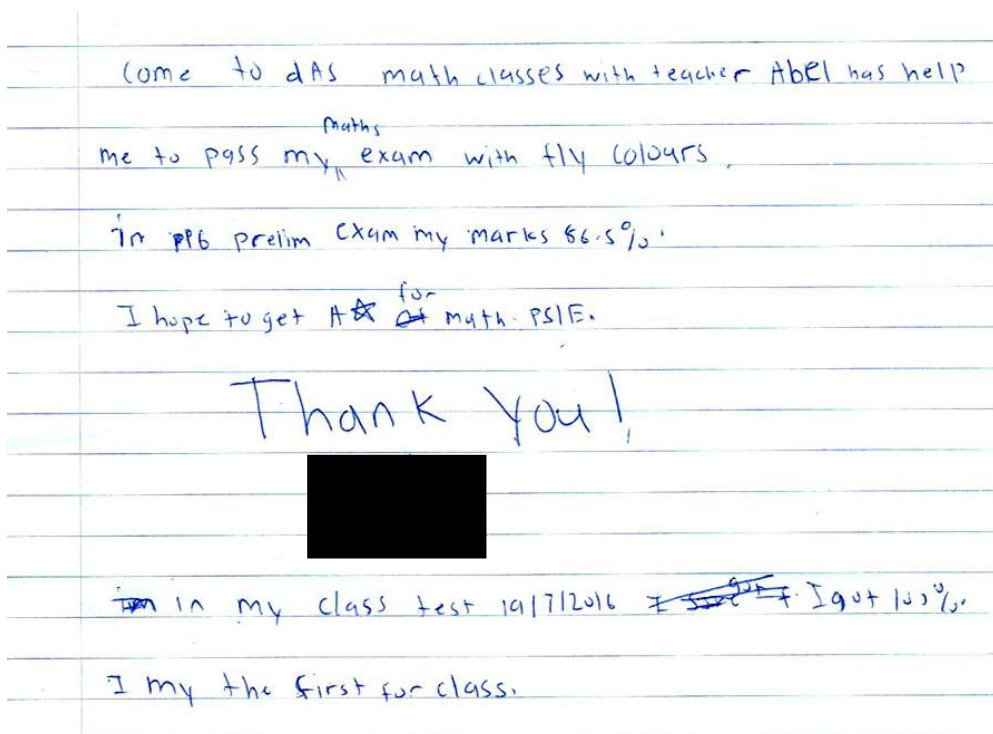 Come to dAS math classes with teacher Abel has help
me to pass my maths exam with fly colours.
in PP6 prelim exam my marks 86.5%.
I hope to get A☆ for math PSlE.
Thank You!
in my class test 19/7/2016 I got 100%.
I my the first for class.